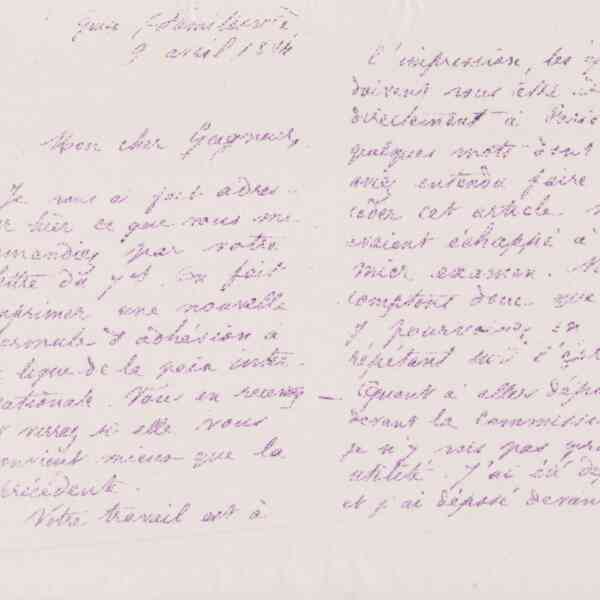 9 avril 18
Mon cher Gagneur,
Je vous ai fait adres-
er hier ce que vous me
mandiez par votre
lettre du 7 ct. On fait
primer une nouvelle
formule d'adhésion à
ligue de la paix inter-
nationale. Vous en recevrez
verrez si elle vous
convient mieux que la
précédente.
Votre travail est à
l'impression, les
doivent vous être
directement à
quelques mots dont
avez entendu faire
céder cet article
avaient échappé à
mier examen.
comptons donc que
y pourvoirez en
répétant sur
Quant à aller dépo
devant la commissi
je n'y vois pas gra
utilité. J'ai été
et j'ai déposé devant